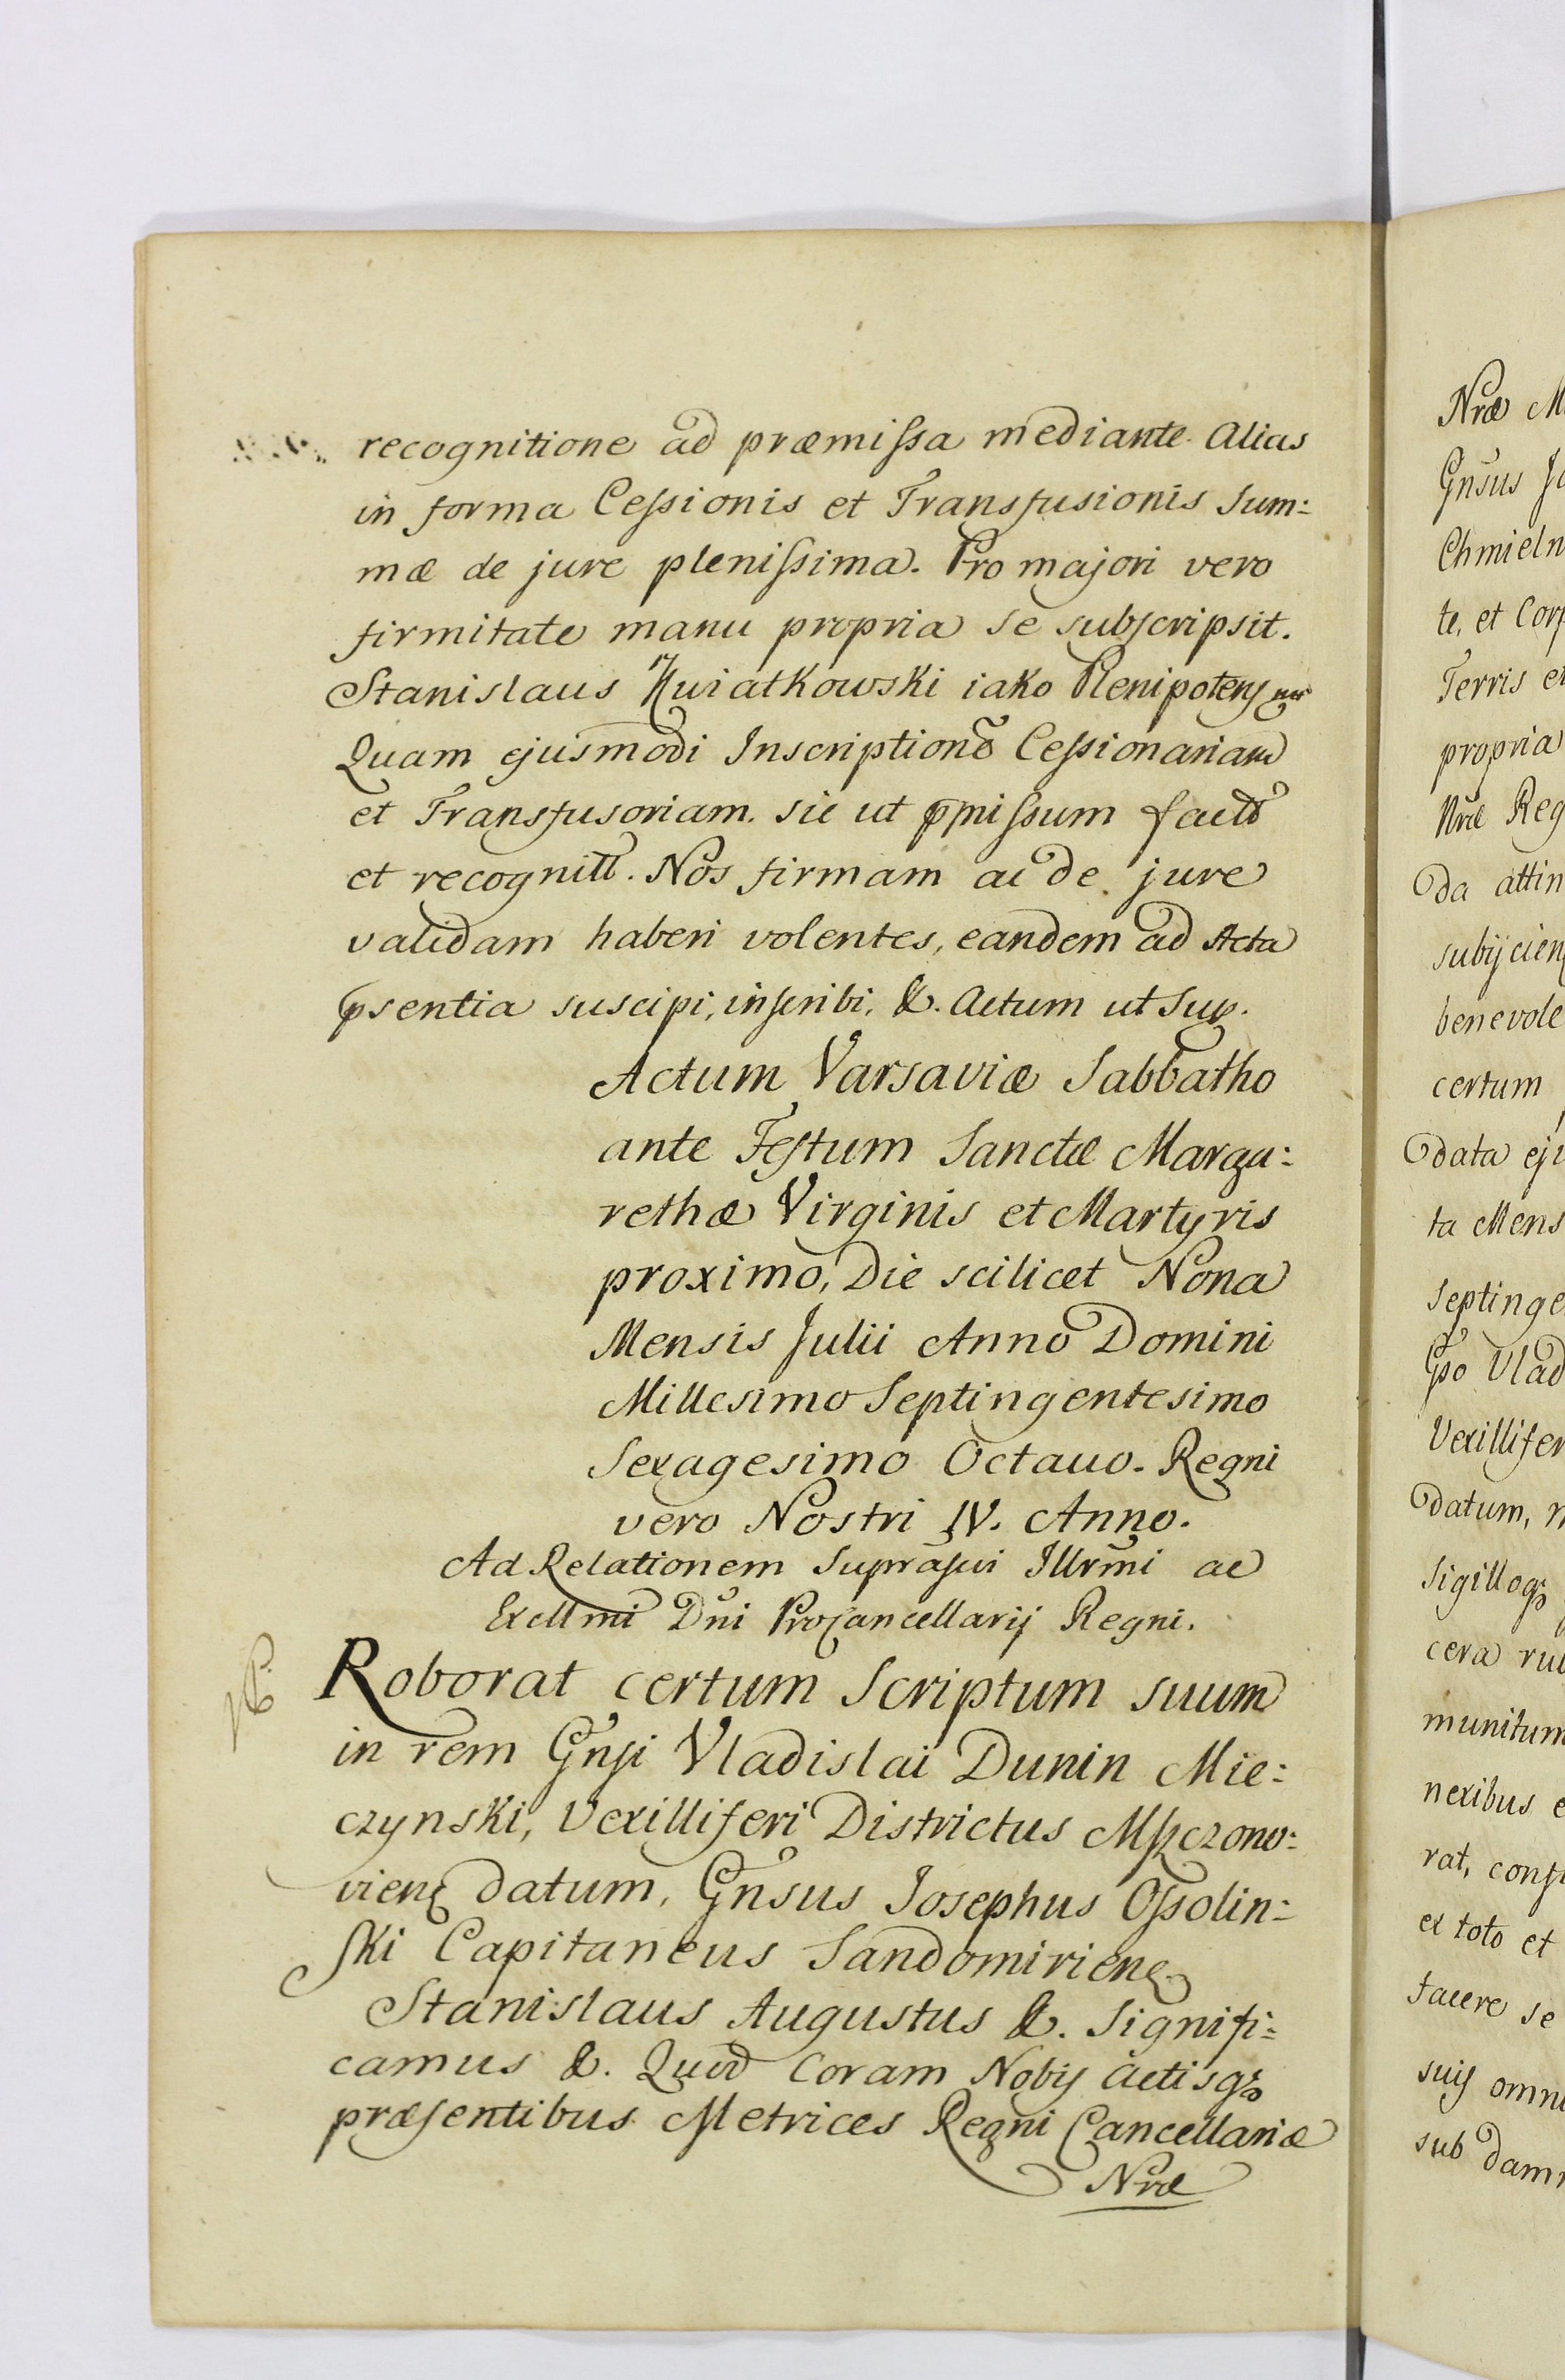 recognitione ad præmiſsa mediante Alias
in forma Ceſsionis et Transfusionis Sum:
mæ de jure pleniſsima. Pro majori vero
firmitate manu propria se subscripsit.
Stanislaus Kwiatkowski iako Plenipotens
Quam ejusmodi Inscriptionẽ Ceſsionariam
et Transfusoriam. sic ut p̃miſsum factã
et recognitã. Nos firmam ac de jure
validam haberi volentes, eandem ad Acta
p̃sentia suscipi, inscribi, &. Actum ut Sup.
Actum Varsaviæ Sabbatho
ante Festum Sanctæ Marga:
rethæ Virginis et Martyris
proximo, Die scilicet Nona
Mensis Julii Anno Domini
Millesimo Septingentesimo
Sexagesimo Octavo. Regni
vero Nostri IV. Anno.
Ad Relationem Supraſcri Illrmi ac
Excllmi Dñi ProCancellarij Regni.
Roborat certum Scriptum suum
in rem Gnsi Vladislai Dunin Mie:
czynski, Vexilliferi Districtus Mſzczono:
vienſ datum, Gnsus Josephus Oſsolin:
ſki Capitaneus Sandomirienſ
Stanislaus Augustus &. Signifi:
camus &. Quod Coram Nobis Actisq3
præsentibus Metrices Regni Cancellariæ
Nræ
Nræ M
Gnsus Jo
Chmieln
te, et Corp
Terris et
propria
Nræ Reg
da attin
subijcienſ
benevole
certum
data ej
ta Mens
Septinge
Gso Vlad
Vexillifer
datum,
Sigilloq3
cera rub
munitum
nexibus e
rat, conſ
ex toto et
facere se
suis omni
sub damn